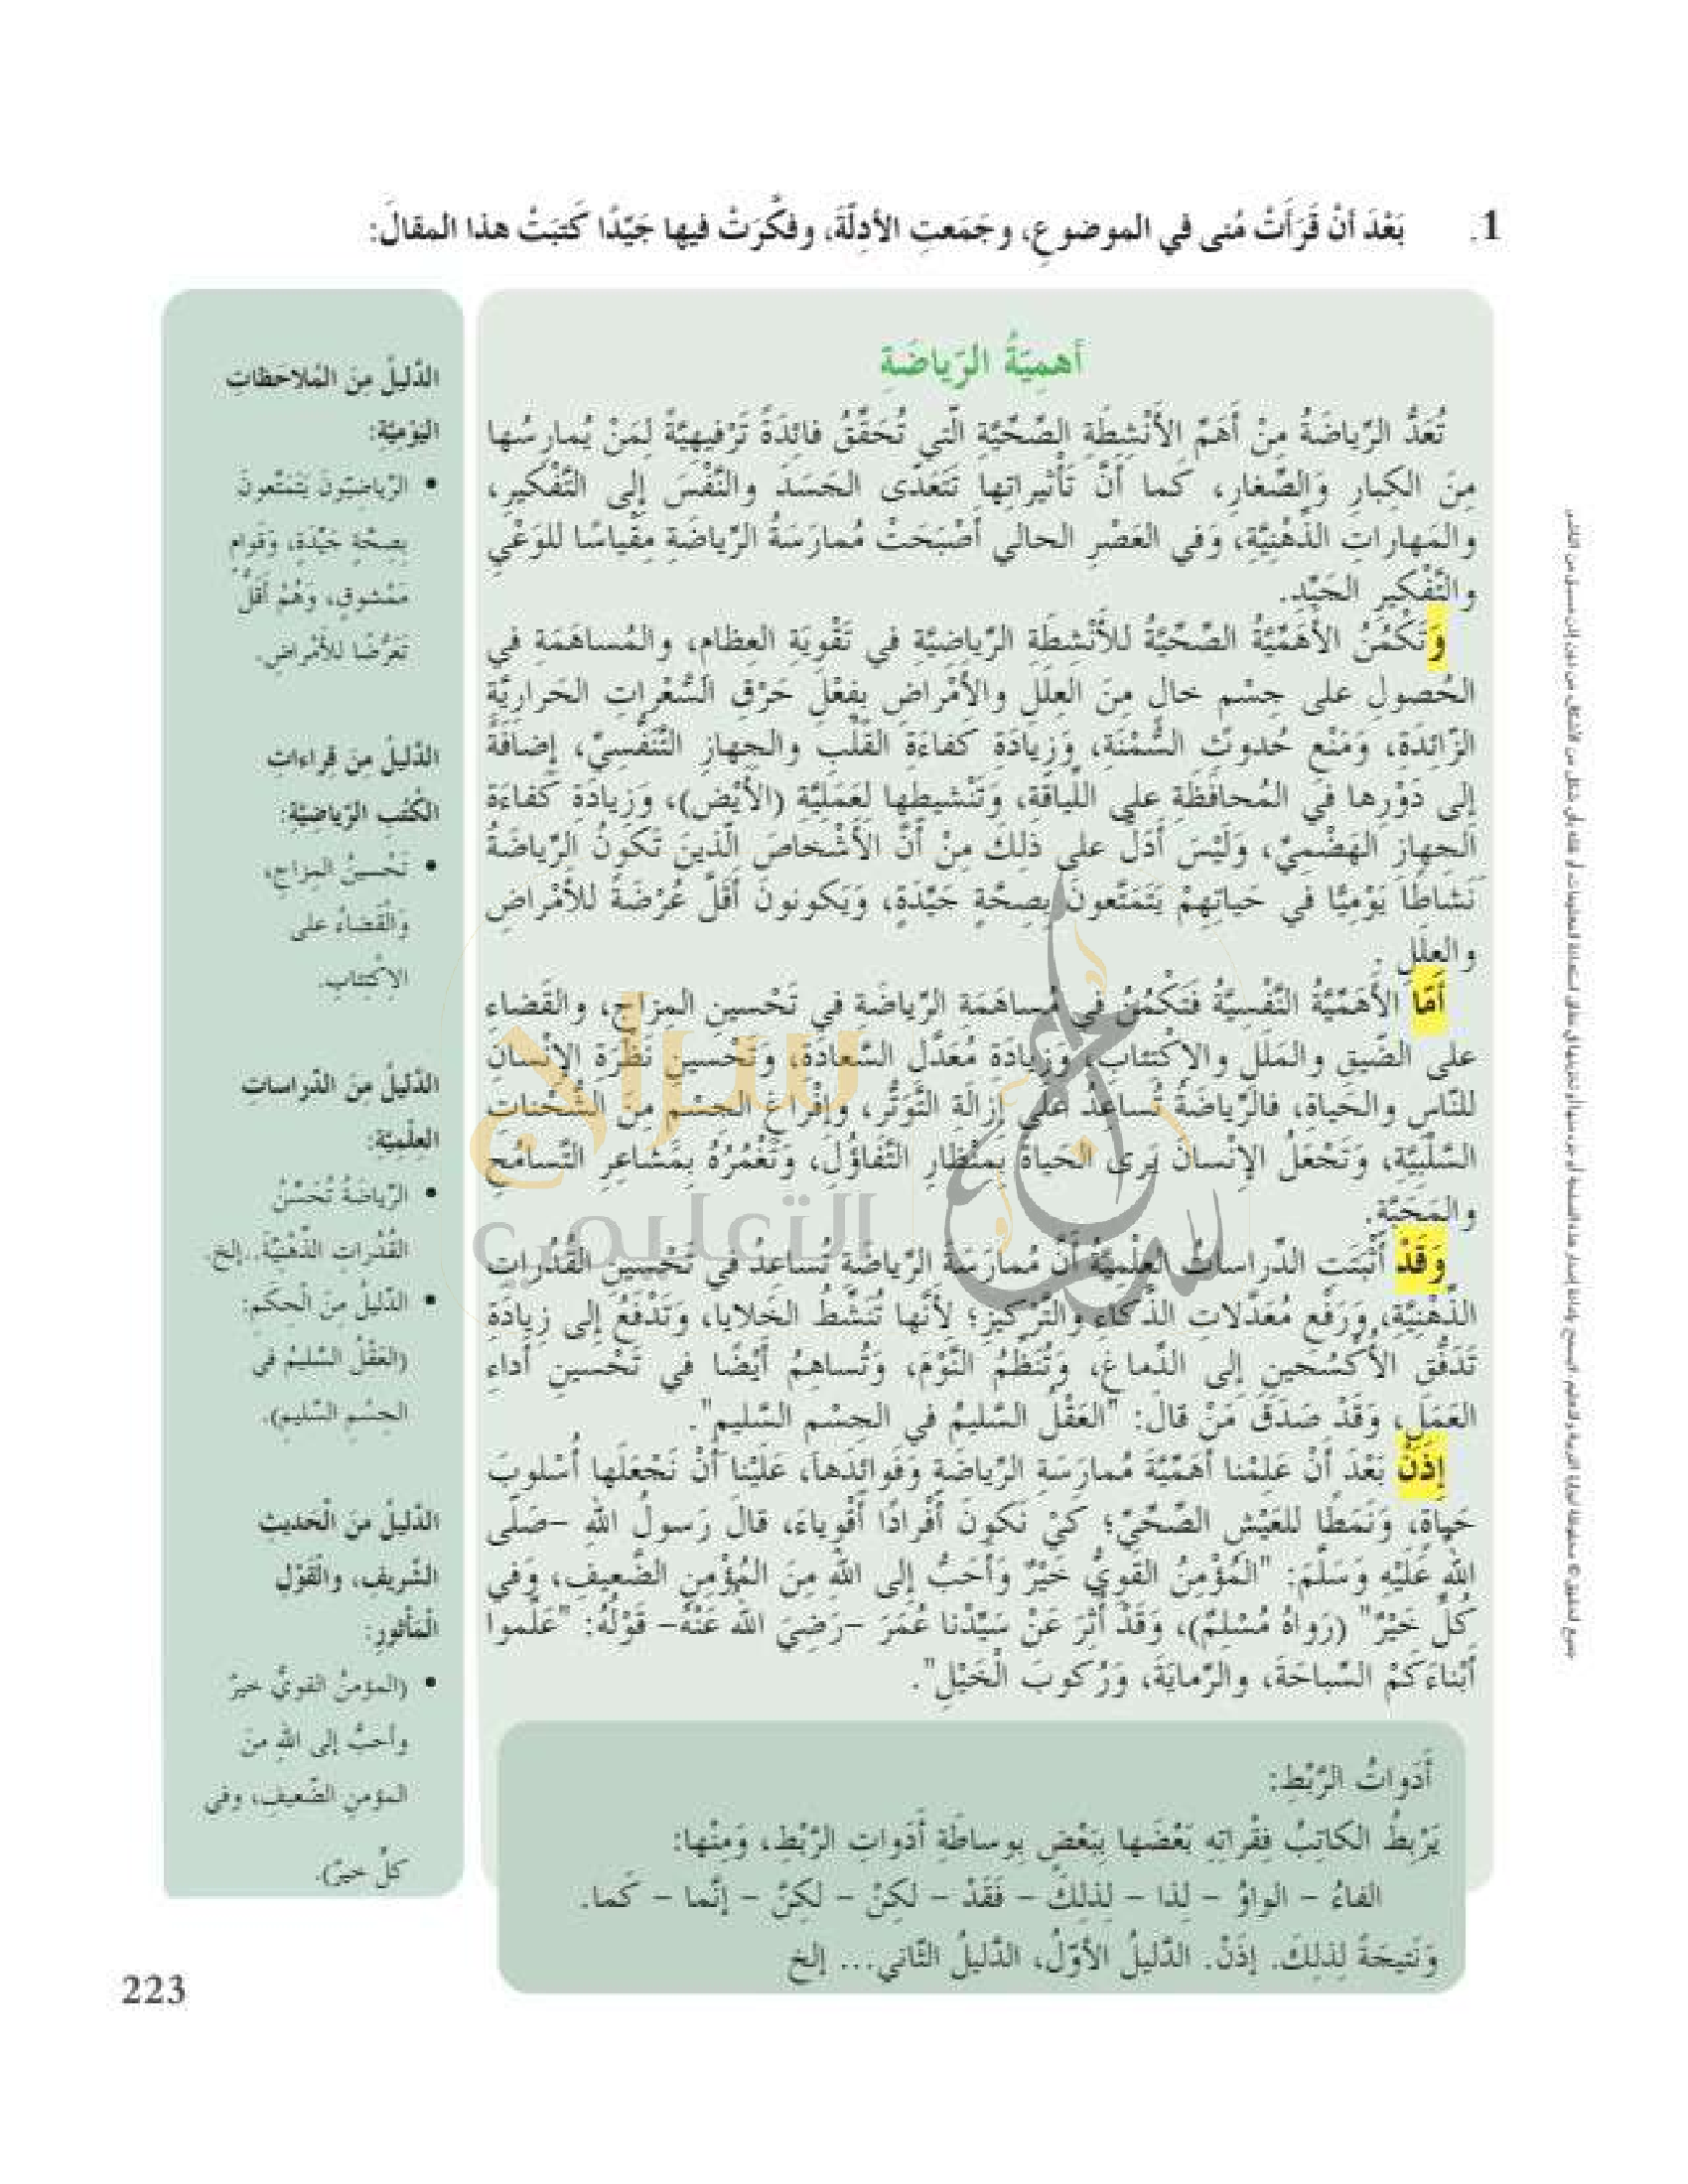 1. بَعْدَ أنْ قَرَأَتْ مُنى في الموضوعِ، وجَمَعتِ الأدِلّةَ، وفكَّرَتْ فيها جَيِّدًا كَتبَتْ هذا المقالَ:
أَهمِيَّةُ الرّياضَةِ
تُعَدُّ الرِّياضَةُ مِنْ أَهَمِّ الأَنْشِطَةِ الصِّحِّيَّةِ الَّتي تُحَقِّقُ فائِدَةً تَرْفيهِيَّةً لِمَنْ يُمارِسُها
مِنَ الكِبارِ وَالصِّغارِ، كَما أَنَّ تَأْثيراتِها تَتَعَدّى الجَسَدَ والنَّفْسَ إلى التَّفْكيرِ،
والمَهاراتِ الذِّهْنِيَّةِ، وَفي العَصْرِ الحالي أَصْبَحَتْ مُمارَسَةُ الرِّياضَةِ مِقْياسًا للوَعْيِ
والتَّفْكيرِ الجَيِّدِ.
وَتَكْمُنُ الأَهَمِّيَّةُ الصِّحِّيَّةُ للأَنْشِطَةِ الرِّياضِيَّةِ في تَقْوِيَةِ العِظامِ، والمُساهَمَةِ في
الحُصولِ على جِسْمٍ خالٍ مِنَ العِلَلِ والأَمْراضِ بِفِعْلِ حَرْقِ السُّعْراتِ الحَرارِيَّةِ
الزّائِدَةِ، وَمَنْعِ حُدوثِ السُّمْنَةِ، وَزِيادَةِ كَفاءَةِ القَلْبِ والجِهازِ التَّنَفُّسِيِّ، إضافَةً
إلى دَوْرِها في المُحافَظَةِ على اللِّياقَةِ، وَتَنْشيطِها لِعَمَلِيَّةِ (الأَيْضِ)، وَزِيادَةِ كَفاءَةِ
الجِهازِ الهَضْمِيِّ، وَلَيْسَ أَدَلَّ على ذلِكَ مِنْ أَنَّ الأَشْخاصَ الَّذينَ تَكونُ الرِّياضَةُ
نَشاطًا يَوْمِيًّا في حَياتِهِمْ يَتَمَتَّعونَ بِصِحَّةٍ جَيِّدَةٍ، وَيَكونونَ أَقَلَّ عُرْضَةً للأَمْراضِ
والعِلَلِ.
أَمّا الأَهَمِّيَّةُ النَّفْسِيَّةُ فَتَكْمُنُ في مُساهَمَةِ الرِّياضَةِ في تَحْسينِ المِزاجِ، والقَضاءِ
على الضّيقِ والمَلَلِ والاكْتئابِ، وَزِيادَةِ مُعَدَّلِ السَّعادَةِ، وَتَحْسينِ نَظْرَةِ الإنْسانِ
للنّاسِ والحَياةِ، فالرِّياضَةُ تُساعِدُ على إزالَةِ التَّوَتُّرِ، وَإفْراغِ الجِسْمِ مِنَ الشُّحْناتِ
السَّلْبِيَّةِ، وَتَجْعَلُ الإنْسانَ يَرى الحَياةَ بِمِنْظارِ التَّفاؤُلِ، وَتَغْمُرُهُ بِمَشاعِرِ التَّسامُحِ
والمَحَبَّةِ.
وَقَدْ أَثْبَتَتِ الدِّراساتُ العِلْمِيَّةُ أَنَّ مُمارَسَةَ الرِّياضَةِ تُساعِدُ في تَحْسينِ القُدُراتِ
الذِّهْنِيَّةِ، وَرَفْعِ مُعَدَّلاتِ الذَّكاءِ والتَّرْكيزِ؛ لأَنَّها تُنَشِّطُ الخَلايا، وَتَدْفَعُ إلى زِيادَةِ
تَدَفُّقِ الأُكْسُجينِ إلى الدِّماغِ، وَتُنَظِّمُ النَّوْمَ، وَتُساهِمُ أَيْضًا في تَحْسينِ أَداءِ
العَمَلِ، وَقَدْ صَدَقَ مَنْ قالَ: "العَقْلُ السَّليمُ في الجِسْمِ السَّليمِ".
إذَنْ بَعْدَ أَنْ عَلِمْنا أَهَمِّيَّةَ مُمارَسَةِ الرِّياضَةِ وَفَوائِدَها، عَلَيْنا أَنْ نَجْعَلَها أُسْلوبَ
حَياةٍ، وَنَمَطًا للعَيْشِ الصِّحِّيِّ؛ كَيْ نَكونَ أَفْرادًا أَقْوِياءَ، قالَ رَسولُ اللهِ -صَلّى
اللهُ عَلَيْهِ وَسَلَّمَ: "المُؤْمِنُ القَوِيُّ خَيْرٌ وَأَحَبُّ إلى اللهِ مِنَ المُؤْمِنِ الضَّعيفِ، وَفي
كُلٍّ خَيْرٌ" (رَواهُ مُسْلِمٌ)، وَقَدْ أُثِرَ عَنْ سَيِّدْنا عُمَرَ -رَضِيَ اللهُ عَنْهُ- قَوْلُهُ: "عَلِّموا
أَبْناءَكُمْ السِّباحَةَ، والرِّمايَةَ، وَرُكوبَ الْخَيْلِ".
أَدَواتُ الرَّبْطِ:
يَرْبِطُ الكاتِبُ فِقْراتِهِ بَعْضَها بِبَعْضٍ بِوساطَةِ أَدَواتِ الرّبْطِ، وَمِنْها:
الفاءُ - الواوُ - لِذا - لِذلِكَ - فَقَدْ - لكِنْ - لكِنَّ - إنَّما - كَما.
وَنَتيجَةً لِذلِكَ. إذَنْ. الدَّليلُ الأوّلُ، الدَّليلُ الثّاني... إلخ
الدَّليلُ مِنَ المُلاحَظاتِ
اليَوْمِيَّةِ:
• الرِّياضِيّونَ يَتَمَتَّعونَ
بِصِحَّةٍ جَيِّدَةٍ، وَقَوامٍ
مَمْشوقٍ، وَهُمْ أَقَلُّ
تَعَرُّضًا للأَمْراضِ.
الدَّليلُ مِنَ قِراءاتِ
الكُتُبِ الرّياضِيَّةِ:
• تَحْسينُ المِزاجِ،
وَالْقَضاءُ على
الاِكْتِئابِ.
الدَّليلُ مِنَ الدّراساتِ
العِلْمِيَّةِ:
• الرِّياضَةُ تُحَسِّنُ
القُدُراتِ الذِّهْنِيَّةَ...إلخ.
• الدَّليلُ مِنَ الْحِكَمِ:
(العَقْلُ السَّليمُ في
الجِسْمِ السَّليمِ).
الدَّليلُ مِنَ الْحَديثِ
الشَّريفِ، والْقَوْلِ
الْمَأْثورِ:
• (المؤمنُ القويُّ خيرٌ
وأحبُّ إلى اللهِ منَ
المؤمنِ الضَّعيفِ، وفي
كلٍّ خيرٌ).
سراج
التعليمي
223